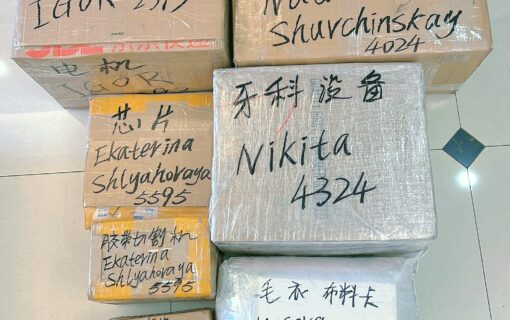 IGOR 2313
电机
IGOR
Shurchinskay
4024
芯片
Ekaterina
Shlyahoraya
5595
牙科设备
Nikita
4324
胶带切割机
Ekaterina
Shlyahoraya
5595
毛衣 布料卡